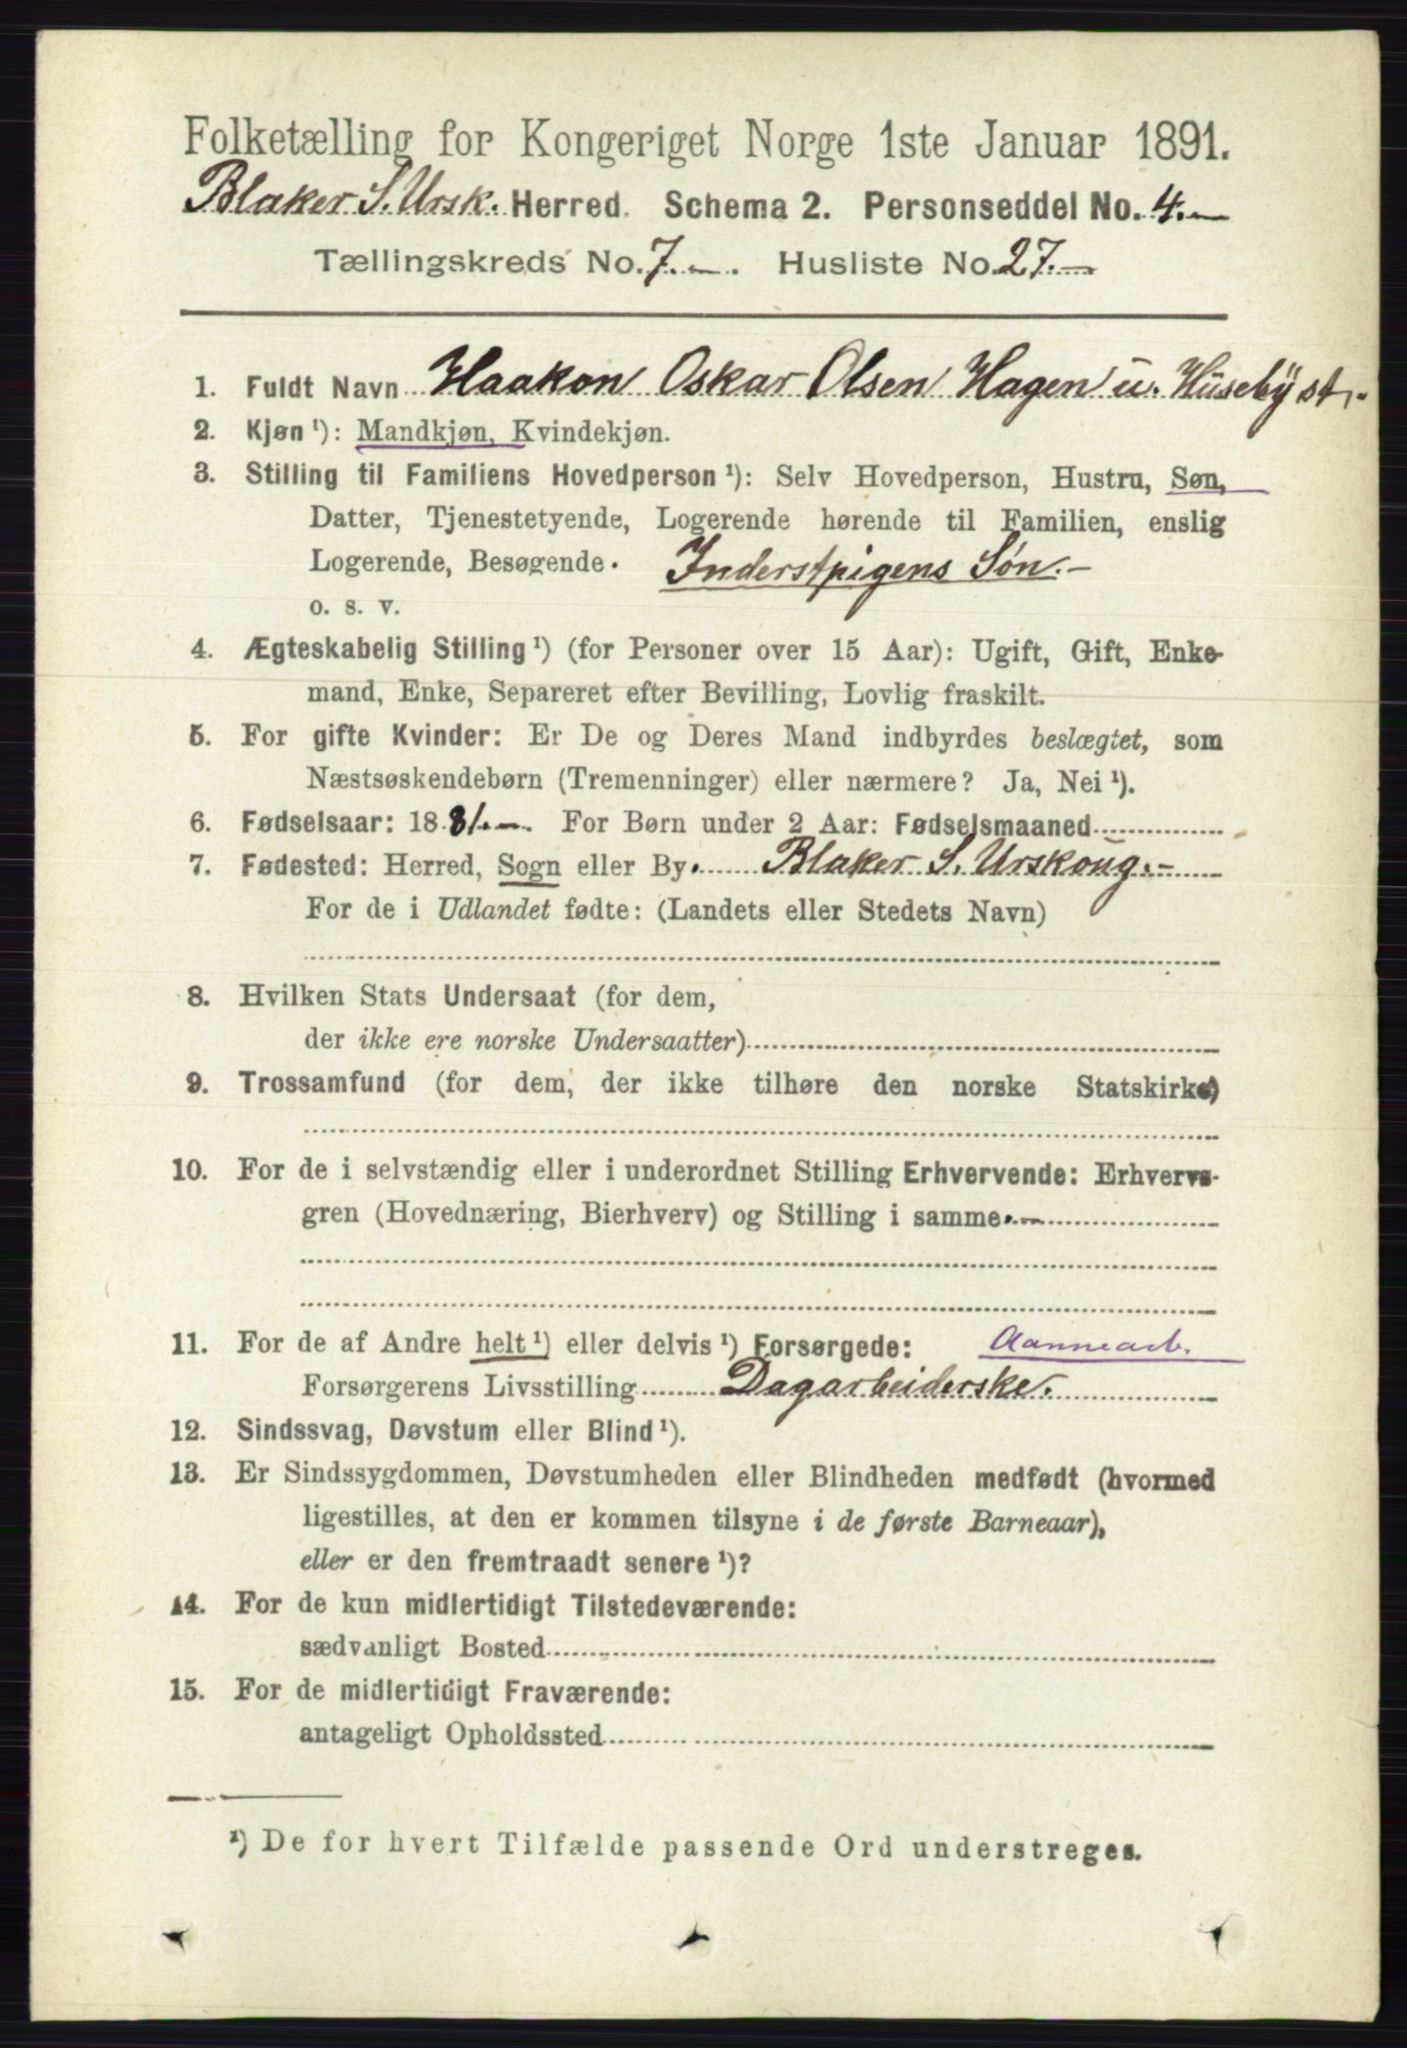 Folketælling for Kongeriget Norge 1ste Januar 1891.
Blaker S. Ursk. Herred. Schema 2. Personseddel No. 4.
Tællingskreds No. 7. Husliste No. 27.
1. Fuldt Navn Haakon Oskar Olsen Hagen u. Huseby st.
2. Kjøn ¹): Mandkjøn, Kvindekjøn.
3. Stilling til Familiens Hovedperson ¹): Selv Hovedperson, Hustru, Søn,
Datter, Tjenestetyende, Logerende hørende til Familien, enslig
Logerende, Besøgende. Inderstpigens Søn.
o. s. v.
4. Ægteskabelig Stilling ¹) (for Personer over 15 Aar): Ugift, Gift, Enke-
mand, Enke, Separeret efter Bevilling, Lovlig fraskilt.
5. For gifte Kvinder: Er De og Deres Mand indbyrdes beslægtet, som
Næstsøskendebørn (Tremenninger) eller nærmere? Ja, Nei ¹).
6. Fødselsaar: 1881. For Børn under 2 Aar: Fødselsmaaned
7. Fødested: Herred, Sogn eller By. Blaker S. Urskoug.
For de i Udlandet fødte: (Landets eller Stedets Navn)
8. Hvilken Stats Undersaat (for dem,
der ikke ere norske Undersaatter)
9. Trossamfund (for dem, der ikke tilhøre den norske Statskirke)
10. For de i selvstændig eller i underordnet Stilling Erhvervende: Erhvervs-
gren (Hovednæring, Bierhverv) og Stilling i samme
11. For de af Andre helt ¹) eller delvis ¹) Forsørgede: Aannearb.
Forsørgerens Livsstilling Dagarbeiderske.
12. Sindssvag, Døvstum eller Blind ¹).
13. Er Sindssygdommen, Døvstumheden eller Blindheden medfødt (hvormed
ligestilles, at den er kommen tilsyne i de første Barneaar),
eller er den fremtraadt senere ¹)?
14. For de kun midlertidigt Tilstedeværende:
sædvanligt Bosted
15. For de midlertidigt Fraværende:
antageligt Opholdssted
¹) De for hvert Tilfælde passende Ord understreges.